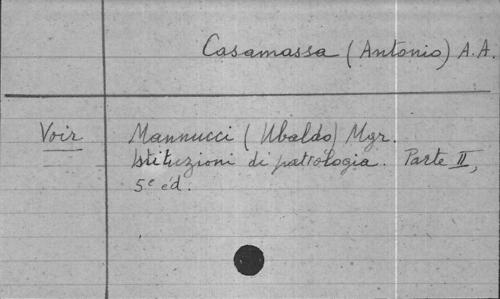 Casamassa (Antonio) A.A.
Voir Mannucci (Ubaldo) Mgr.
Istituzioni di patrologia. Parte II,
5e éd.